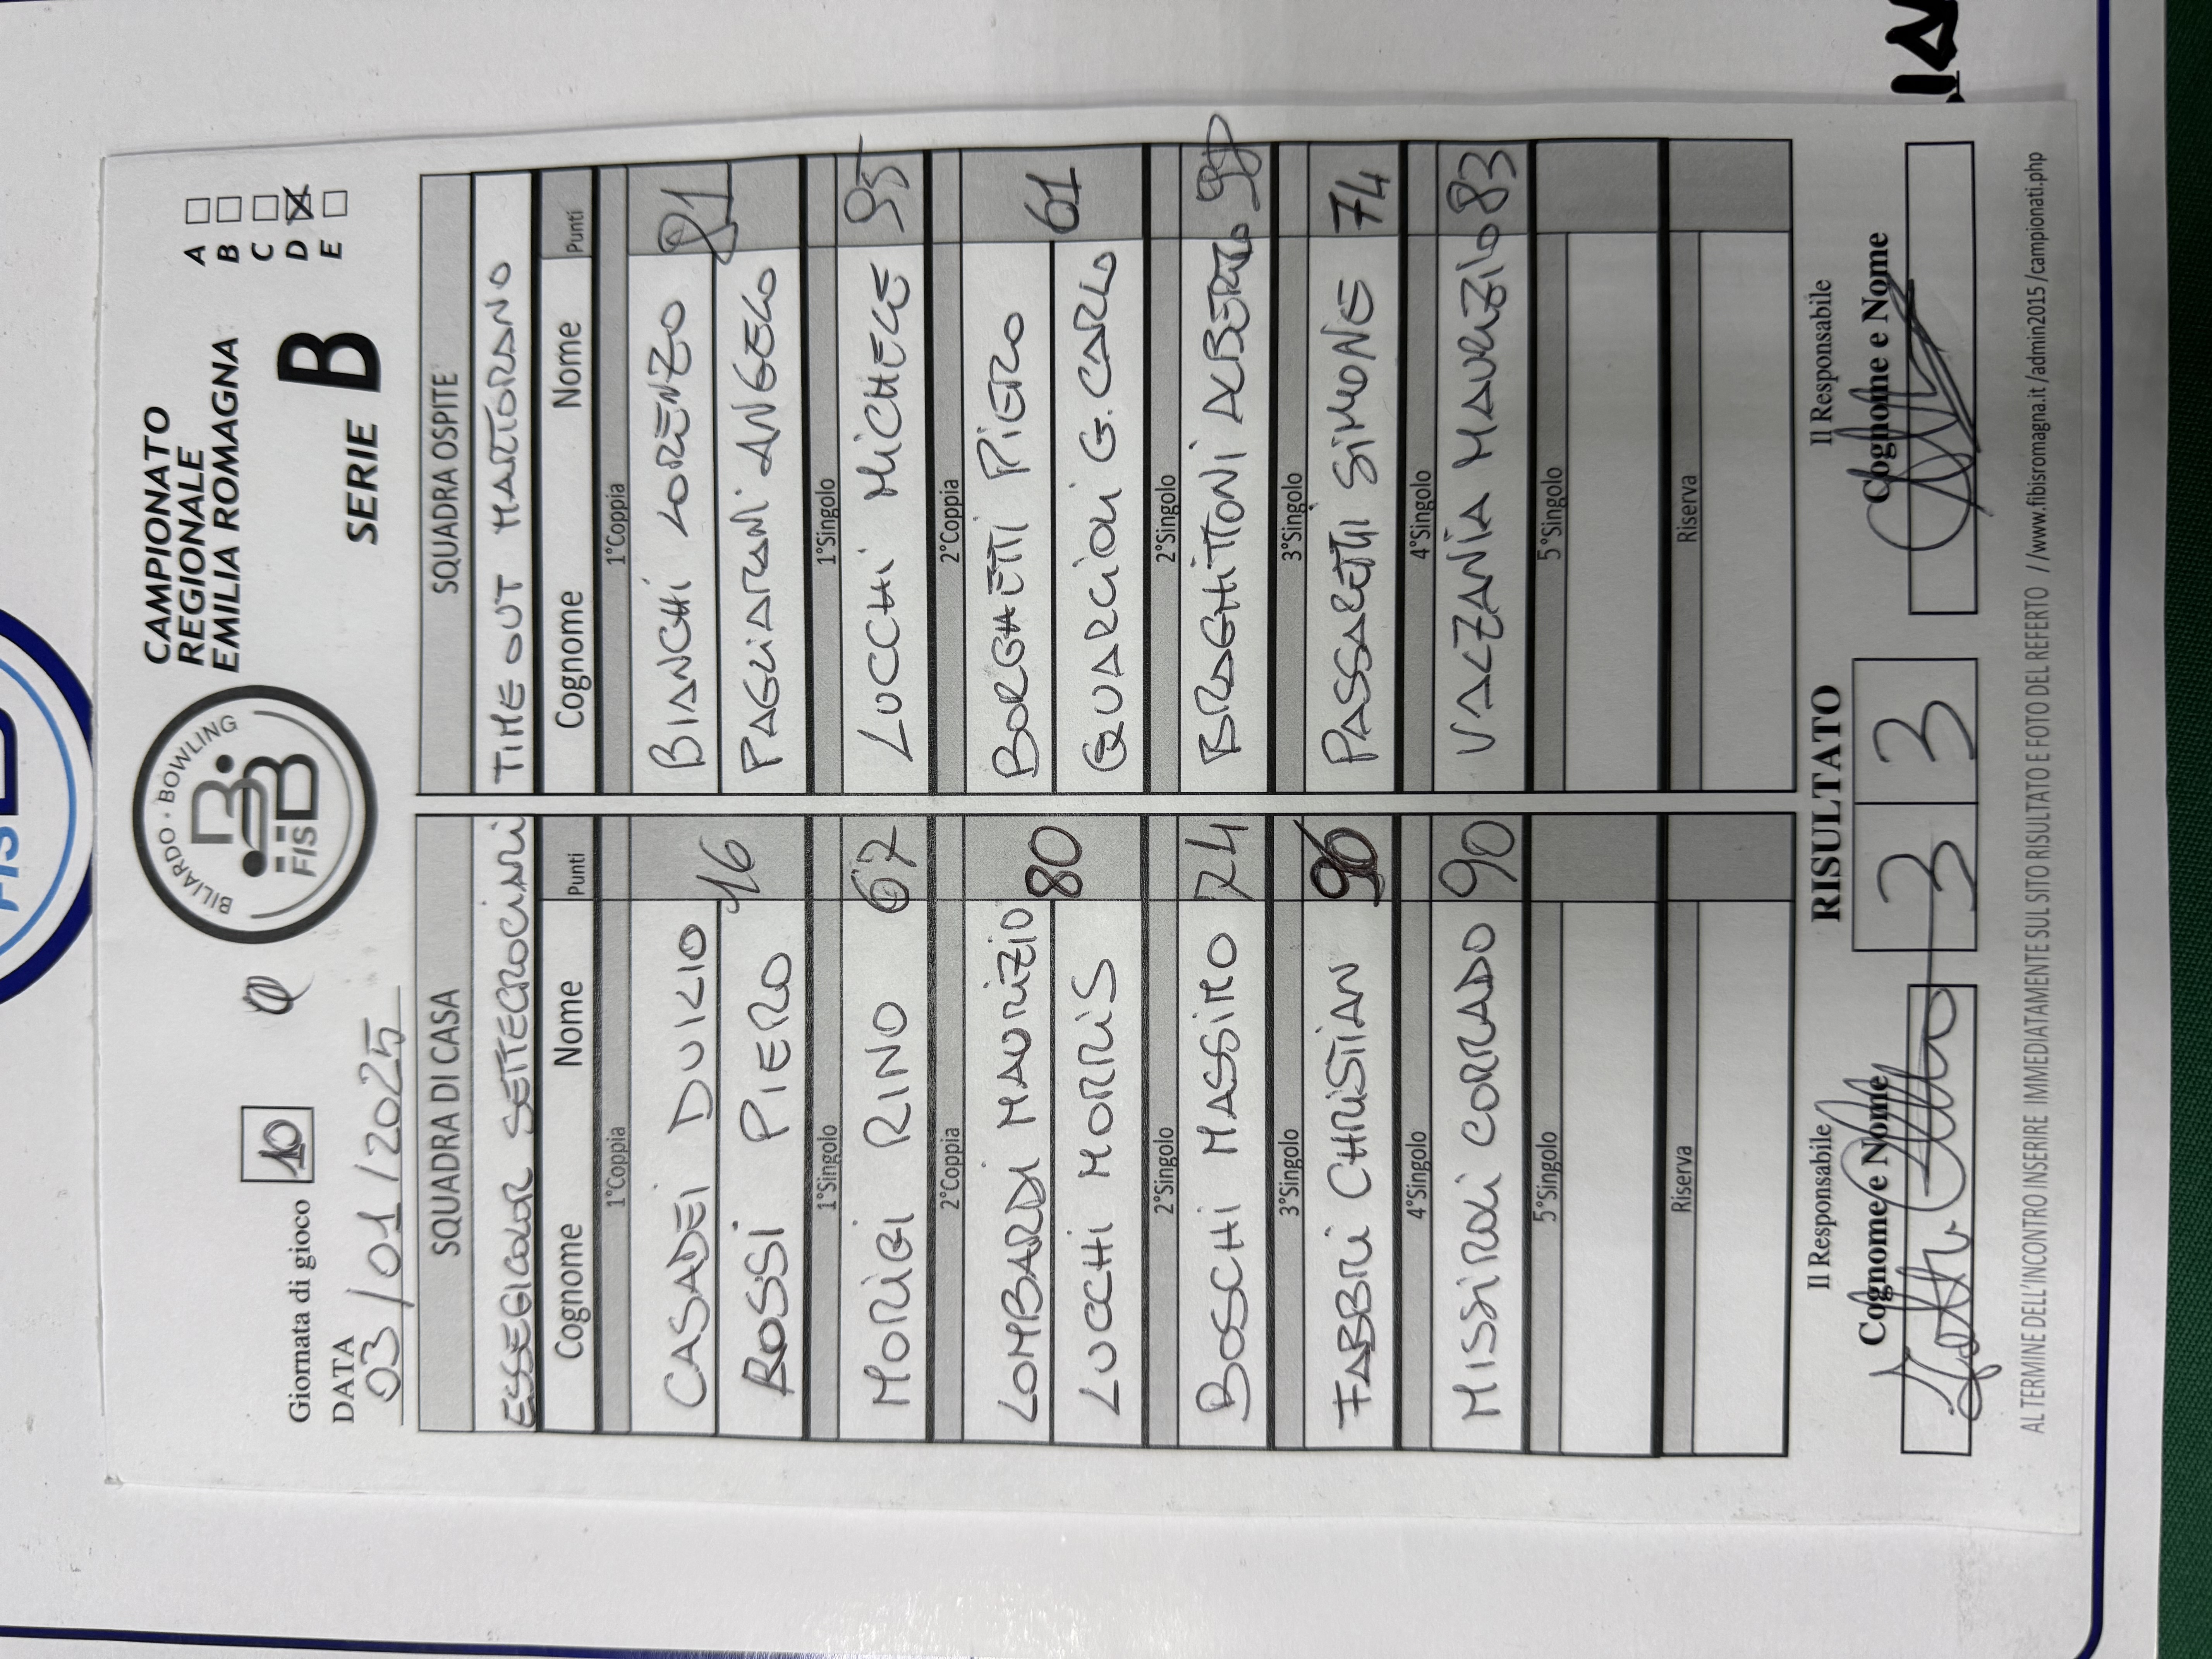 CAMPIONATO
REGIONALE
EMILIA ROMAGNA
SERIE B
A
B
C
D
E
BILIARDO · BOWLING
FISBB
Giornata di gioco 10
DATA
03/01/2025
SQUADRA DI CASA
ESSEGICOLOR SETTECROCIARI
Cognome Nome Punti
1°Coppia
CASADEI DUILIO
ROSSI PIERO
46
1°Singolo
MORIGI RINO 67
2°Coppia
LOMBARDI MAURIZIO
LUCCHI MORRIS
80
2°Singolo
BOSCHI MASSIMO 74
3°Singolo
FABBRI CHRISTIAN 96
4°Singolo
MISSIROLI CORRADO 90
5°Singolo
Riserva
SQUADRA OSPITE
TIME OUT MARTORANO
Cognome Nome Punti
1°Coppia
BIANCHI LORENZO
PAGLIARANI ANGELO
81
1°Singolo
LUCCHI MICHELE 95
2°Coppia
BORGHETTI PIERO
QUARCIONI G. CARLO
61
2°Singolo
BRAGHITTONI ALBERTO
3°Singolo
PASSARETTI SIMONE 74
4°Singolo
VALZANIA MAURIZIO 83
5°Singolo
Riserva
Il Responsabile
Cognome e Nome
RISULTATO
3 3
Il Responsabile
Cognome e Nome
AL TERMINE DELL'INCONTRO INSERIRE IMMEDIATAMENTE SUL SITO RISULTATO E FOTO DEL REFERTO //www.fibisromagna.it/admin2015/campionati.php